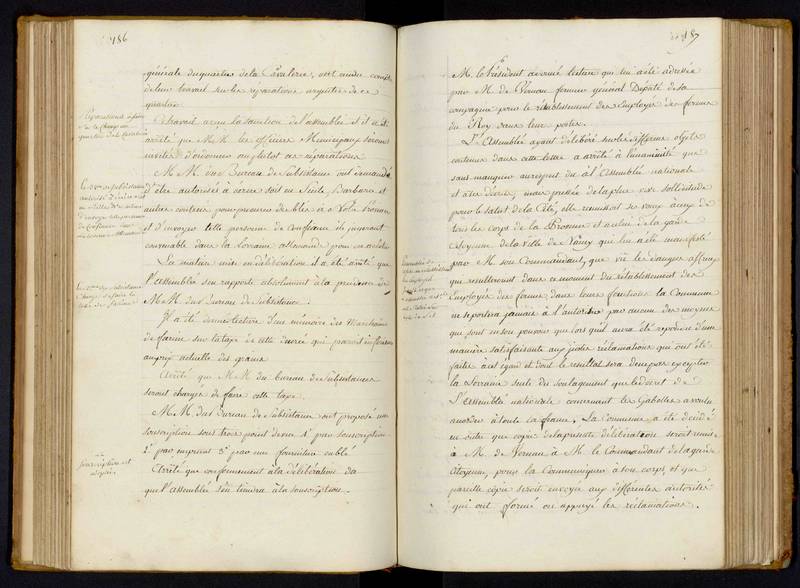 186
générale du quartier de la Cavalerie, ont rendu compte
de leur travail sur les réparations urgentes de ce
quartier
Ce travail a eu la sanction de l'assemblée et il a été
arrêté que M.M. les officiers Municipaux seront
invités d'ordonner au plutôt ces réparations
M.M. du Bureau de Subsistance ont demandé
d'être autorisés à écrire soit en Suisse, Barbarie et
autres contrées pour procurer des bleds à
et d'envoyer telle personne de Confiance ils jugeront
convenable dans la Lorraine allemande pour en acheter
La matière mise en délibération il a été arrêté que
l'assemblée s'en rapporte absolument à la prudence de
M.M. du Bureau de Subsistance.
Il a été donné lecture d'un mémoire des Marchands
de farine sur la taxe de cette denrée qui paroit inférieure
au prix actuelle des grains
Arrêté que M.M. du bureau des Subsistances
seront chargés de faire cette taxe.
M.M. du Bureau de Subsistance ont proposé une
souscription sous trois point de vue 1° par souscription
2° par emprunt 3° par une fourniture en bled
Arrêté que conformément à la délibération du
que l'assemblée s'en tiendra à la souscription.
Réparations à faire
quartier de la Cavalerie
Le Bureau de Subsistance
autorisé d'écrire
d'envoyer une personne
de Confiance
Lorraine Allemande
Le Bureau des Subsistances
Chargé de faire la
taxe des farines
Souscription est
187
M. le Président a donné lecture qui lui a été adressée
par M. de Vernon fermier général Député de sa
compagnie pour le rétablissement des Employés des fermes
du Roy dans leur postes.
L'Assemblée ayant délibéré sur les différens objets
contenus dans cette lettre a arrêté à l'unanimité que
sans manquer au respect dû à l'Assemblée nationale
et à ses décrets, mais pressée de la plus vive sollicitude
pour le salut de la Cité, elle réunissoit ses voeux à ceux de
tous les corps de la Province et à celui de la garde
citoyenne de la ville de Nancy que lui a été manifesté
par M. son Commandant, que vû les dangers affreux
qui resulteroient dans ce moment du rétablissement des
Employés des fermes dans leurs fonctions la Commune
ne se portera jamais à l'autoriser par aucun des moyens
qui sont en son pouvoir que lorsqu'il aura été répondu d'une
manière satisfaisante aux justes réclamations qui ont été
faites à cet égard et dont le resultat sera de ne pas excepter
la Lorraine seule du soulagement que le décret de
l'Assemblée nationale concernant les Gabelles a voulu
accorder à toute la france. La Commune a été décidé
en outre que copie de la présente délibération seroit remise
à M. de Vernon à M. le Commandant de la garde
Citoyenne, pour la Communiquer à son corps, et que
pareille copie seroit envoyée aux différentes autorités
qui ont formé ou appuyé les réclamations.